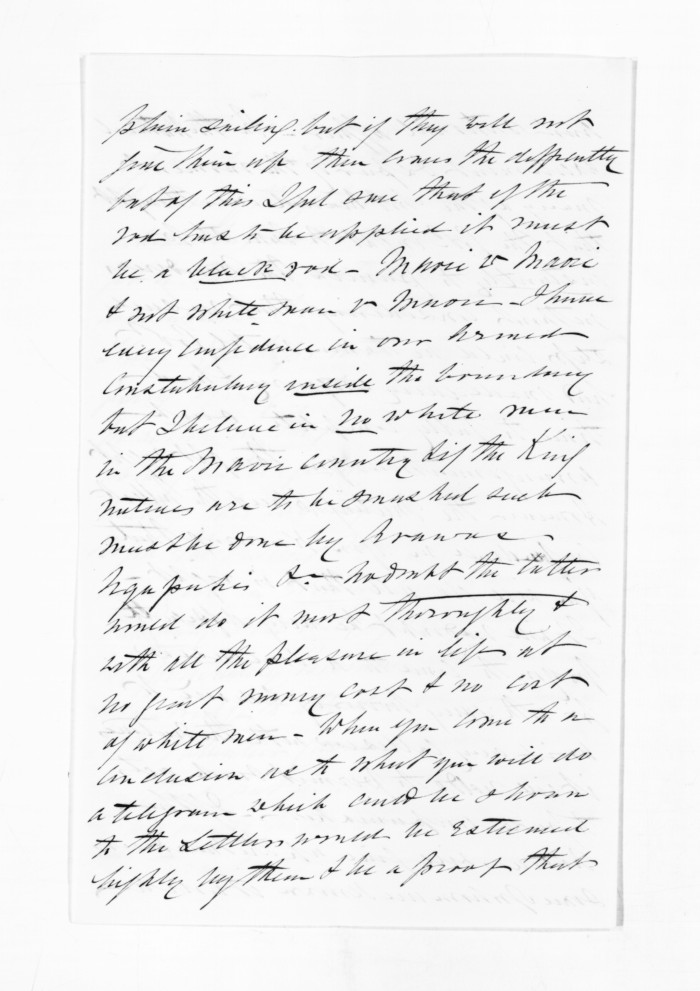 plain sailing. but if they will not
give them up then comes the difficulty
but of this I feel sure that if the
rod has to be applied it must
be a black rod - Maori v Maori
& not white man v Maori - I have
every confidence in our Armed
Constabulary inside the boundary
but I believe in no white men
in the Maori country & if the King
natives are to be smashed such
must be done by Arawas
Ngapuhis &c no doubt the latter
would do it most thoroughly &
with all the pleasure in life at
no great money cost & no cost
of white men - When you come to a
conclusion as to what you will do
a telegram which could be shown
to the Settlers would be Esteemed
highly by them & be a proof that